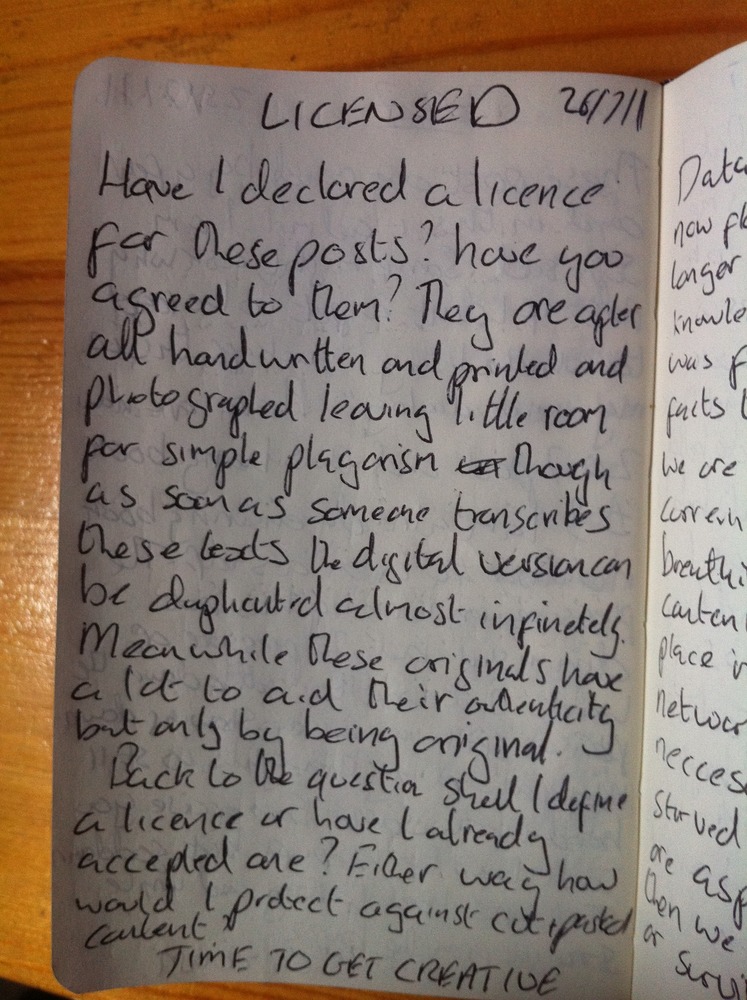 LICENSED 26/7/11
Have I declared a licence
for these posts? have you
agreed to them? They are after
all handwritten and printed and
photograpled leaving little room
for simple plagarism though
as soon as someone transcribes
these texts the digital version can
be duplicated almost infinetely.
Meanwhile these originals have
a lot to aid their authenticity
but only by being original.
Back to the question shall I define
a licence or have I already
accepted one? Either way how
would I protect against cut + pasted
content
TIME TO GET CREATIVE
Data
now
longer
was
facts
we are
place
are
then we
or